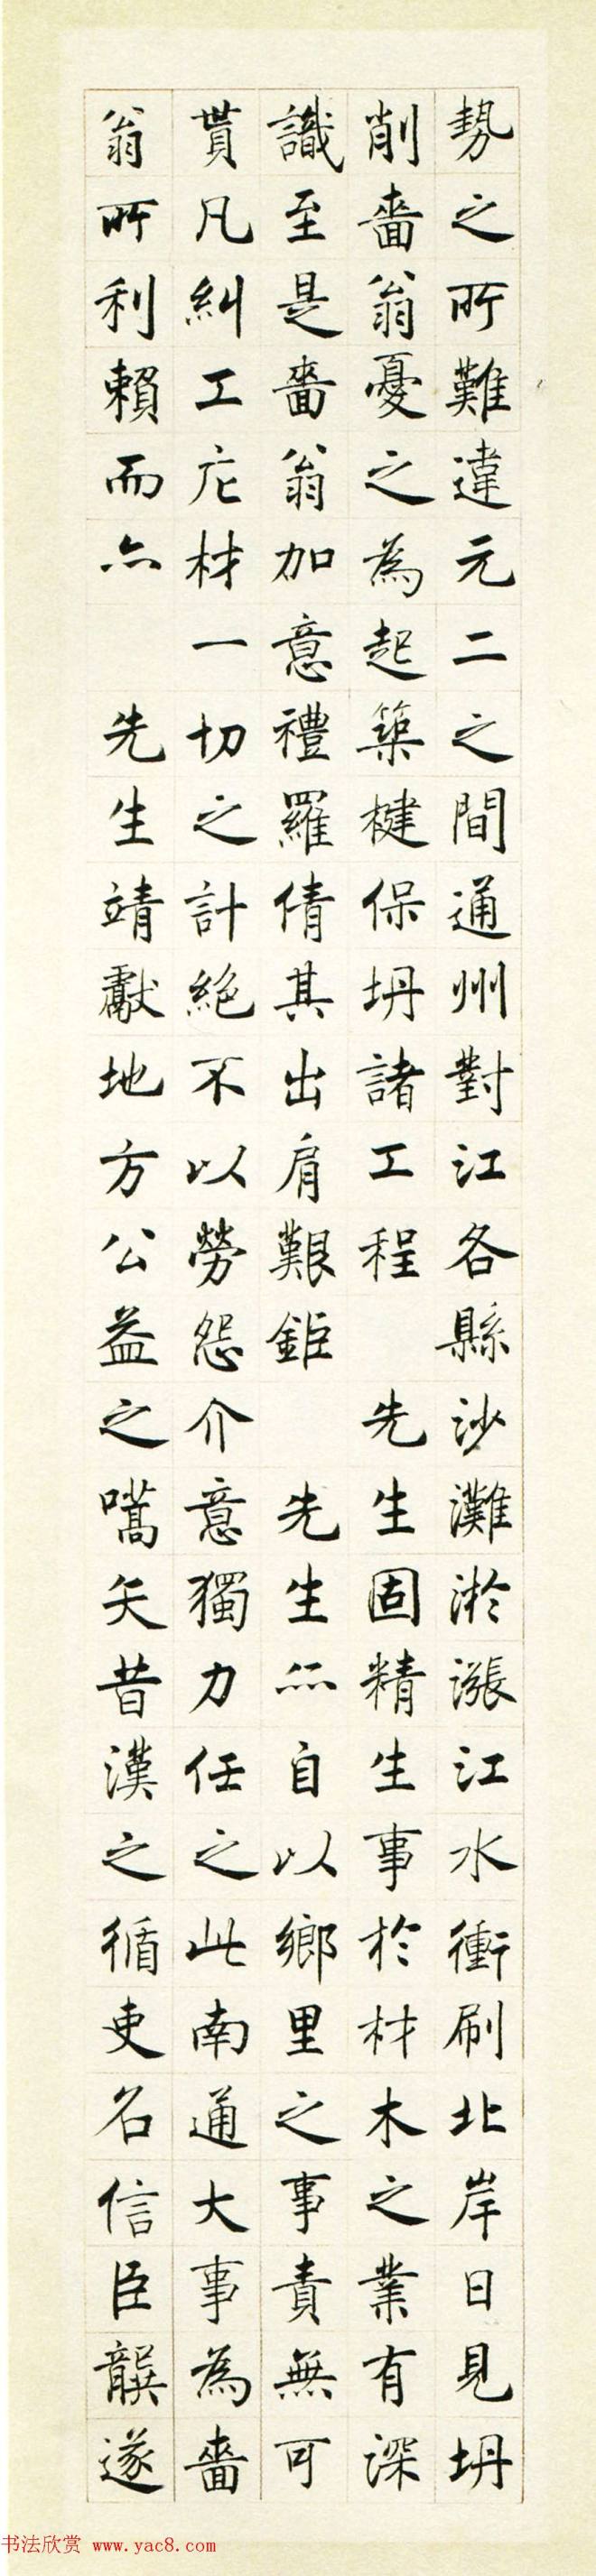 勢之所難違元二之間通州對江各縣沙灘淤漲江水衝刷北岸日見坍
削嗇翁憂之為起築楗保坍諸工程　先生固精生事於材木之業有深
識至是嗇翁加意禮羅倩其出肩艱鉅　先生亦自以鄉里之事責無可
貰凡糾工庀材一切之計絕不以勞怨介意獨力任之此南通大事為嗇
翁所利賴而亦　先生靖獻地方公益之嚆矢昔漢之循吏名信臣龔遂
书法欣赏 www.yac8.com